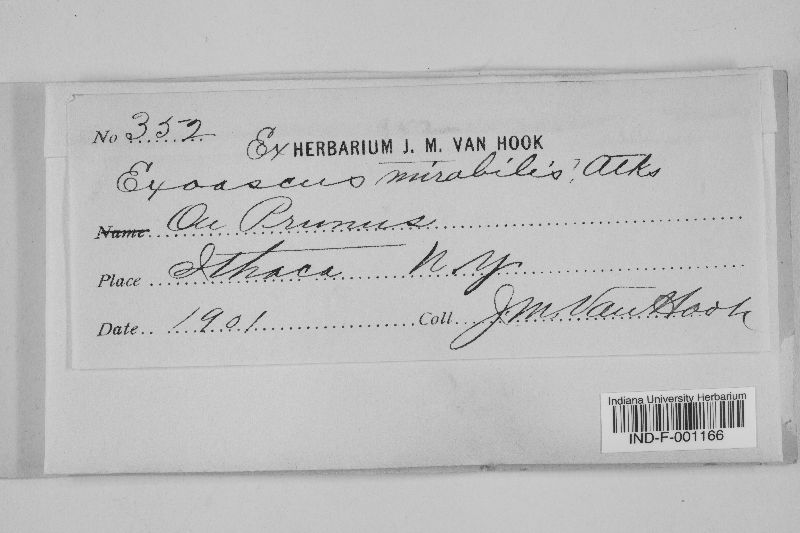 No 352
Ex HERBARIUM J. M. VAN HOOK
Exoascus mirabilis? Atks
Name On Prunus
Place Ithaca N.Y.
Date 1901 Coll. J.M. Van Hook
Indiana University Herbarium
IND-F-001166